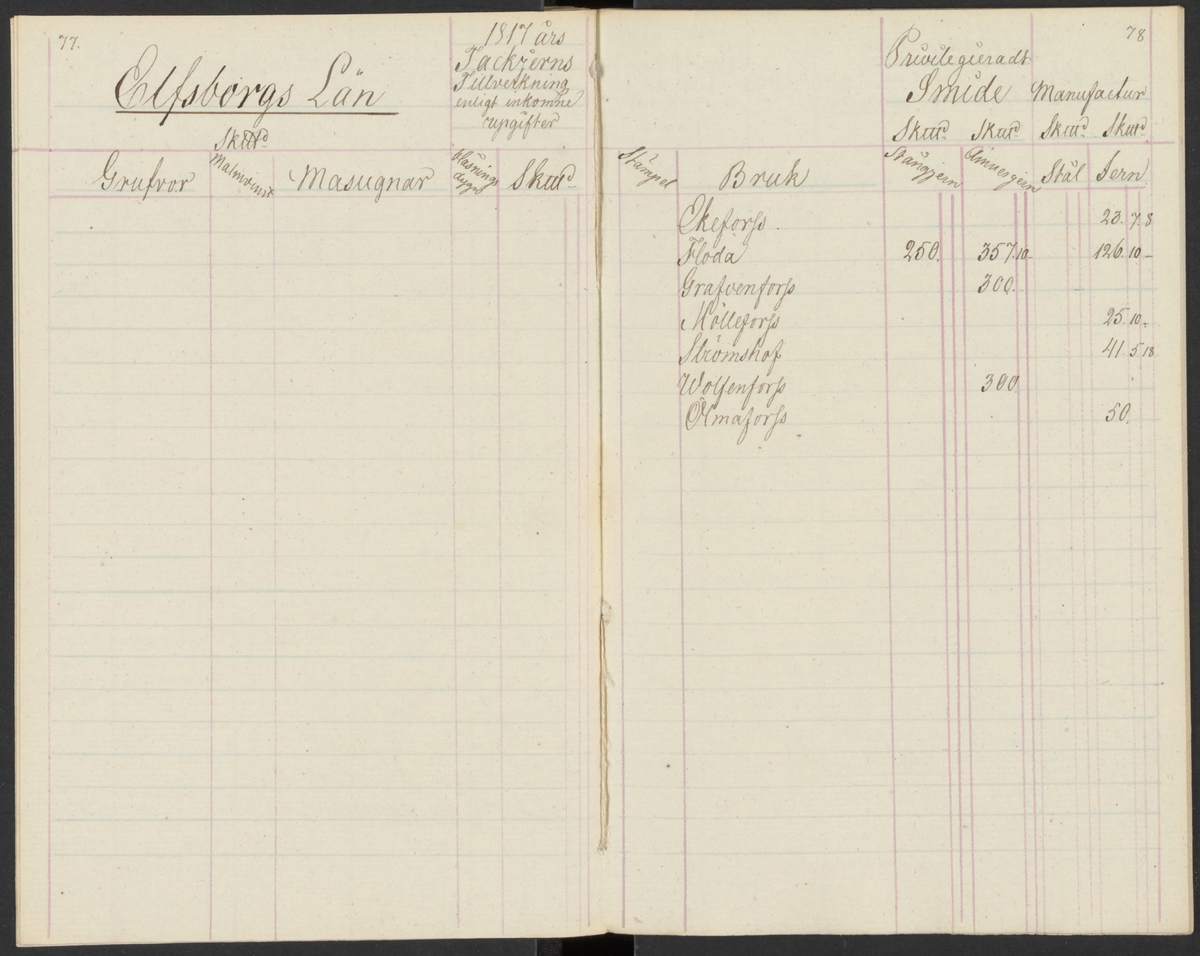 77.
Elfsborgs Län
1817 års
Tackjerns
Tillverkning
enligt inkomne
upgifter
Skttd
Grufvor
Masugnar
Blåsnings
dygn
Skttd
78
Privilegieradt
Smide Manufactur
Skttd Skttd Skttd Skttd
Stämpel Bruk Stångjern Stål Jern
Ekeforss 23. 7. 8
Floda 250. 357. 10 - 126. 10 -
Grafvenforss 300.
Mölleforss 25. 10. -
Strömshof 41. 5. 18
Wolfenforss 300
Ålmaforss 50.